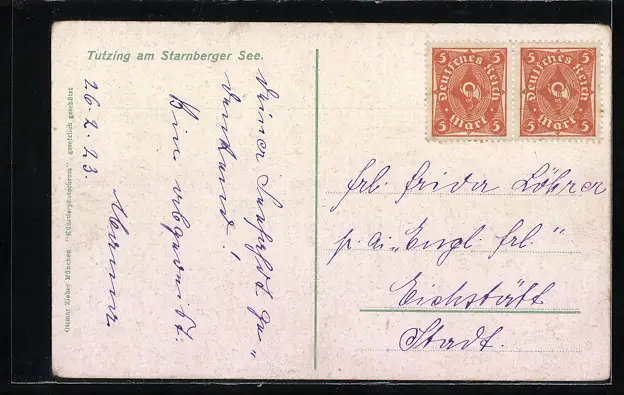 Tutzing am Starnberger See.
Ottmar Zieher München "Künstlerphotochrom", gesetzlich geschützt
26.2.23.
Deiner Seefahrt ge-
denkend!
Bin abgereist.
Deutsches Reich
5 5
5 Mark 5
Deutsches Reich
5 5
5 Mark 5
Frl. Frida Löhrer
p. a. "Engl. Frl."
Eichstätt
Stadt.